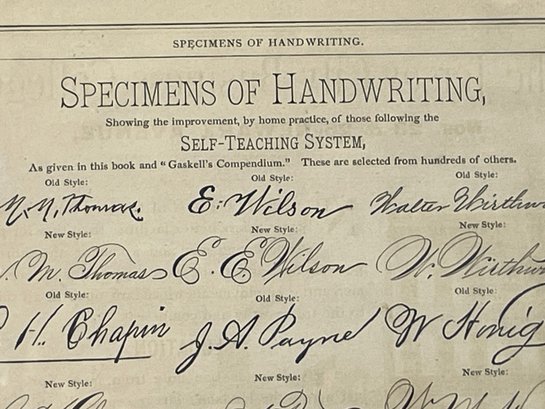 SPECIMENS OF HANDWRITING.
SPECIMENS OF HANDWRITING,
Showing the improvement, by home practice, of those following the
SELF-TEACHING SYSTEM,
As given in this book and "Gaskell's Compendium." These are selected from hundreds of others.
Old Style: Old Style: Old Style:
Thomas. E. Wilson Walter
New Style: New Style: New Style:
M. Thomas E. E. Wilson W.
Old Style: Old Style: Old Style:
H. Chapin J. A. Payne W Honig
New Style: New Style: New Style: